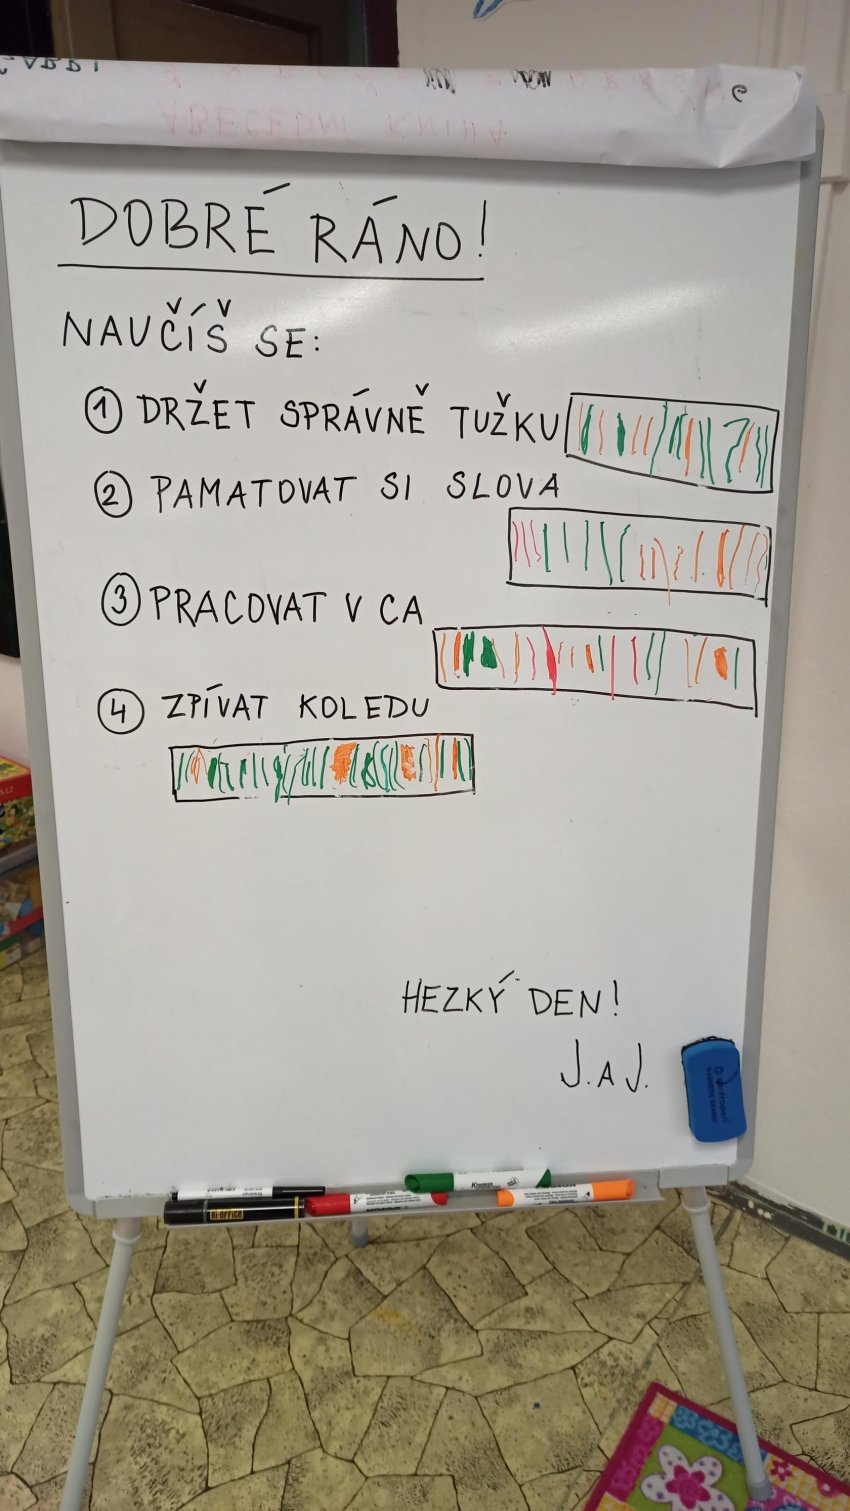 ABECEDNÍ KNIHA
DOBRÉ RÁNO!
NAUČÍŠ SE:
1 DRŽET SPRÁVNĚ TUŽKU
2 PAMATOVAT SI SLOVA
3 PRACOVAT V CA
4 ZPÍVAT KOLEDU
HEZKÝ DEN!
J. A J.
BI-OFFICE